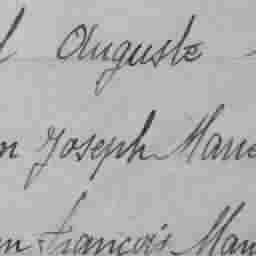 Auguste
Joseph Marie
François Mar